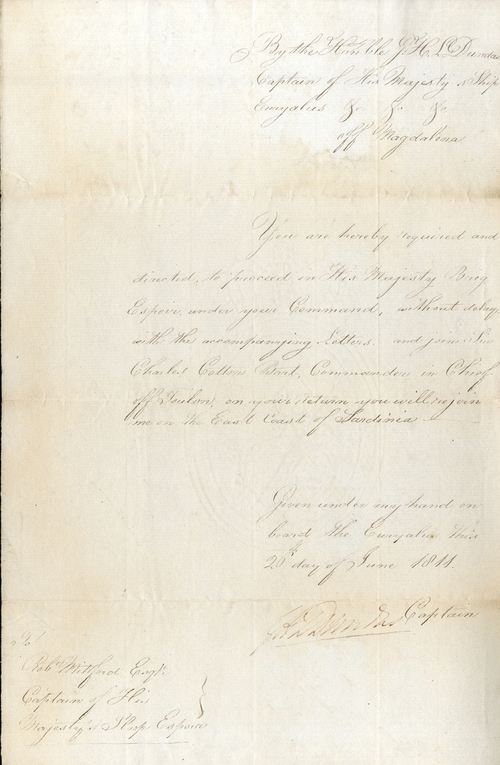 By the Honble G. H. L. Dundas
Captain of His Majesty's Ship
Euryalus &c. &c. &c.
off Magdalena
You are hereby required and
directed, to proceed in His Majesty Brig
Espoir, under your Command, without delay,
with the accompanying Letters, and join Sir
Charles Cotton Bart. Commander in Chief
off Toulon, on your return you will rejoin
me on the East Coast of Sardinia
Given under my hand on
board the Euryalus this
20th day of June 1811.
Captain
To
Robt Mitford Esqr.
Captain of His
Majesty's Sloop Espoir